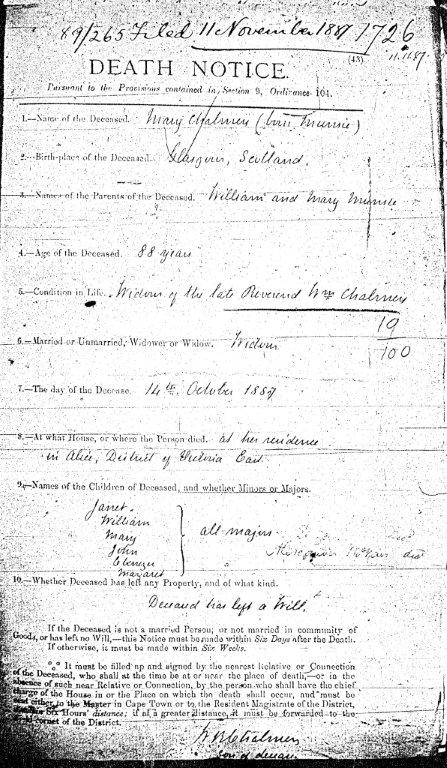 89/265 Filed 11 November 1887 1726
(43)
11.11.87.
DEATH NOTICE.
Pursuant to the Provisions contained in Section 9, Ordinance 104.
1.—Name of the Deceased. Mary Chalmers (born
2.—Birth-place of the Deceased. Glasgow, Scotland.
3.—Names of the Parents of the Deceased. William and Mary
4.—Age of the Deceased. 88 years
5.—Condition in Life. Widow of the late Reverend Wm Chalmers
19
100
6.—Married or Unmarried, Widower or Widow. Widow
7.—The day of the Decease. 14th October 1887
8.—At what House, or where the Person died. at her residence
in Alice, District of Victoria East
9.—Names of the Children of Deceased, and whether Minors or Majors.
Janet.
William
Mary
John
Ebenezer
Margaret
all majors
10.—Whether Deceased has left any Property, and of what kind.
Deceased has left a Will.
If the Deceased is not a married Person, or not married in community of
Goods, or has left no Will,—this Notice must be made within Six Days after the Death.
If otherwise, it must be made within Six Weeks.
It must be filled up and signed by the nearest Relative or Connection
of the Deceased, who shall at the time be at or near the place of death,—or in the
absence of such near Relative or Connection, by the person who shall have the chief
charge of the House in or the Place on which the death shall occur, and must be
send either to the Master in Cape Town or to the Resident Magistrate of the District,
Six Hours' distance; if at a greater distance, it must be forwarded to the
cornet of the District.
Chalmers
son of deceased